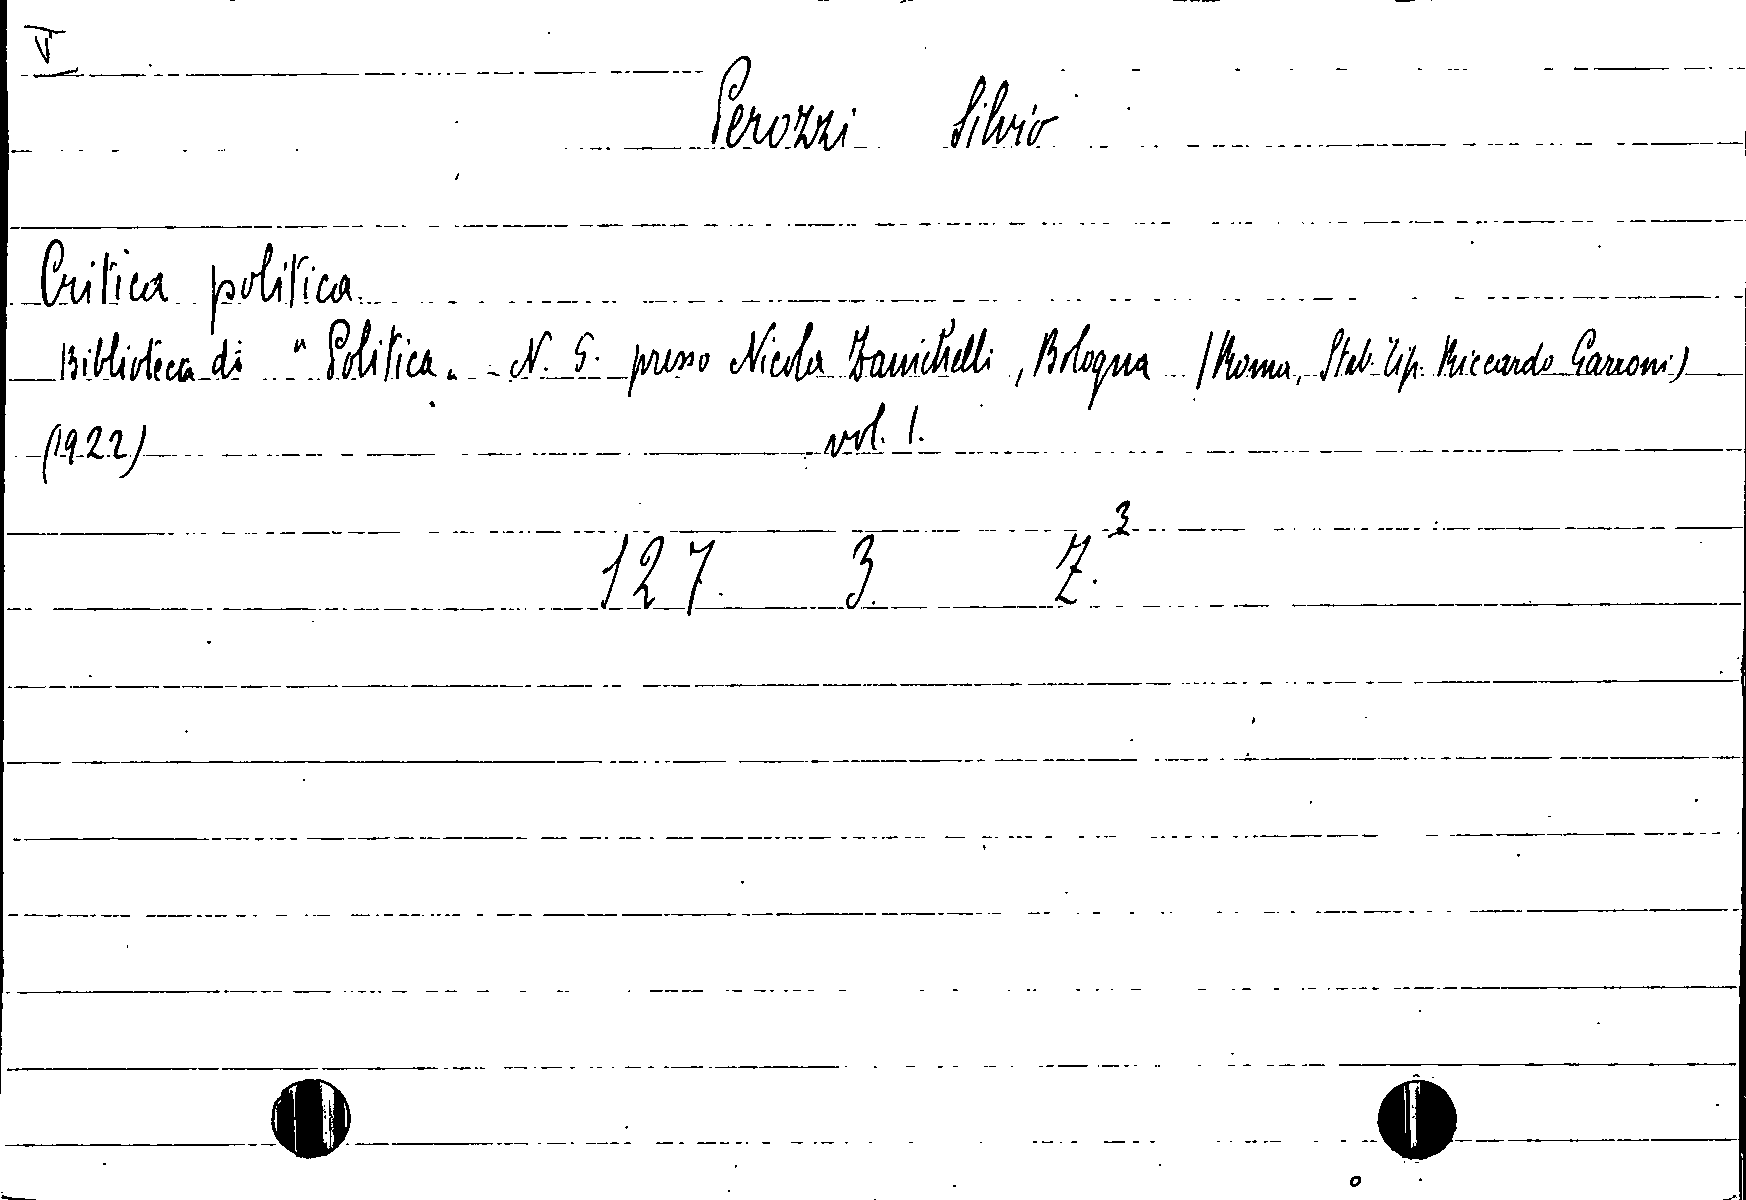 V
Perozzi Silvio
Critica politica
Biblioteca di "Politica" - N. 5. presso Nicola Zanichelli, Bologna (Roma, Stab. Tip. Riccardo Garroni)
(1922) vol. 1.
127. 3. Z.³